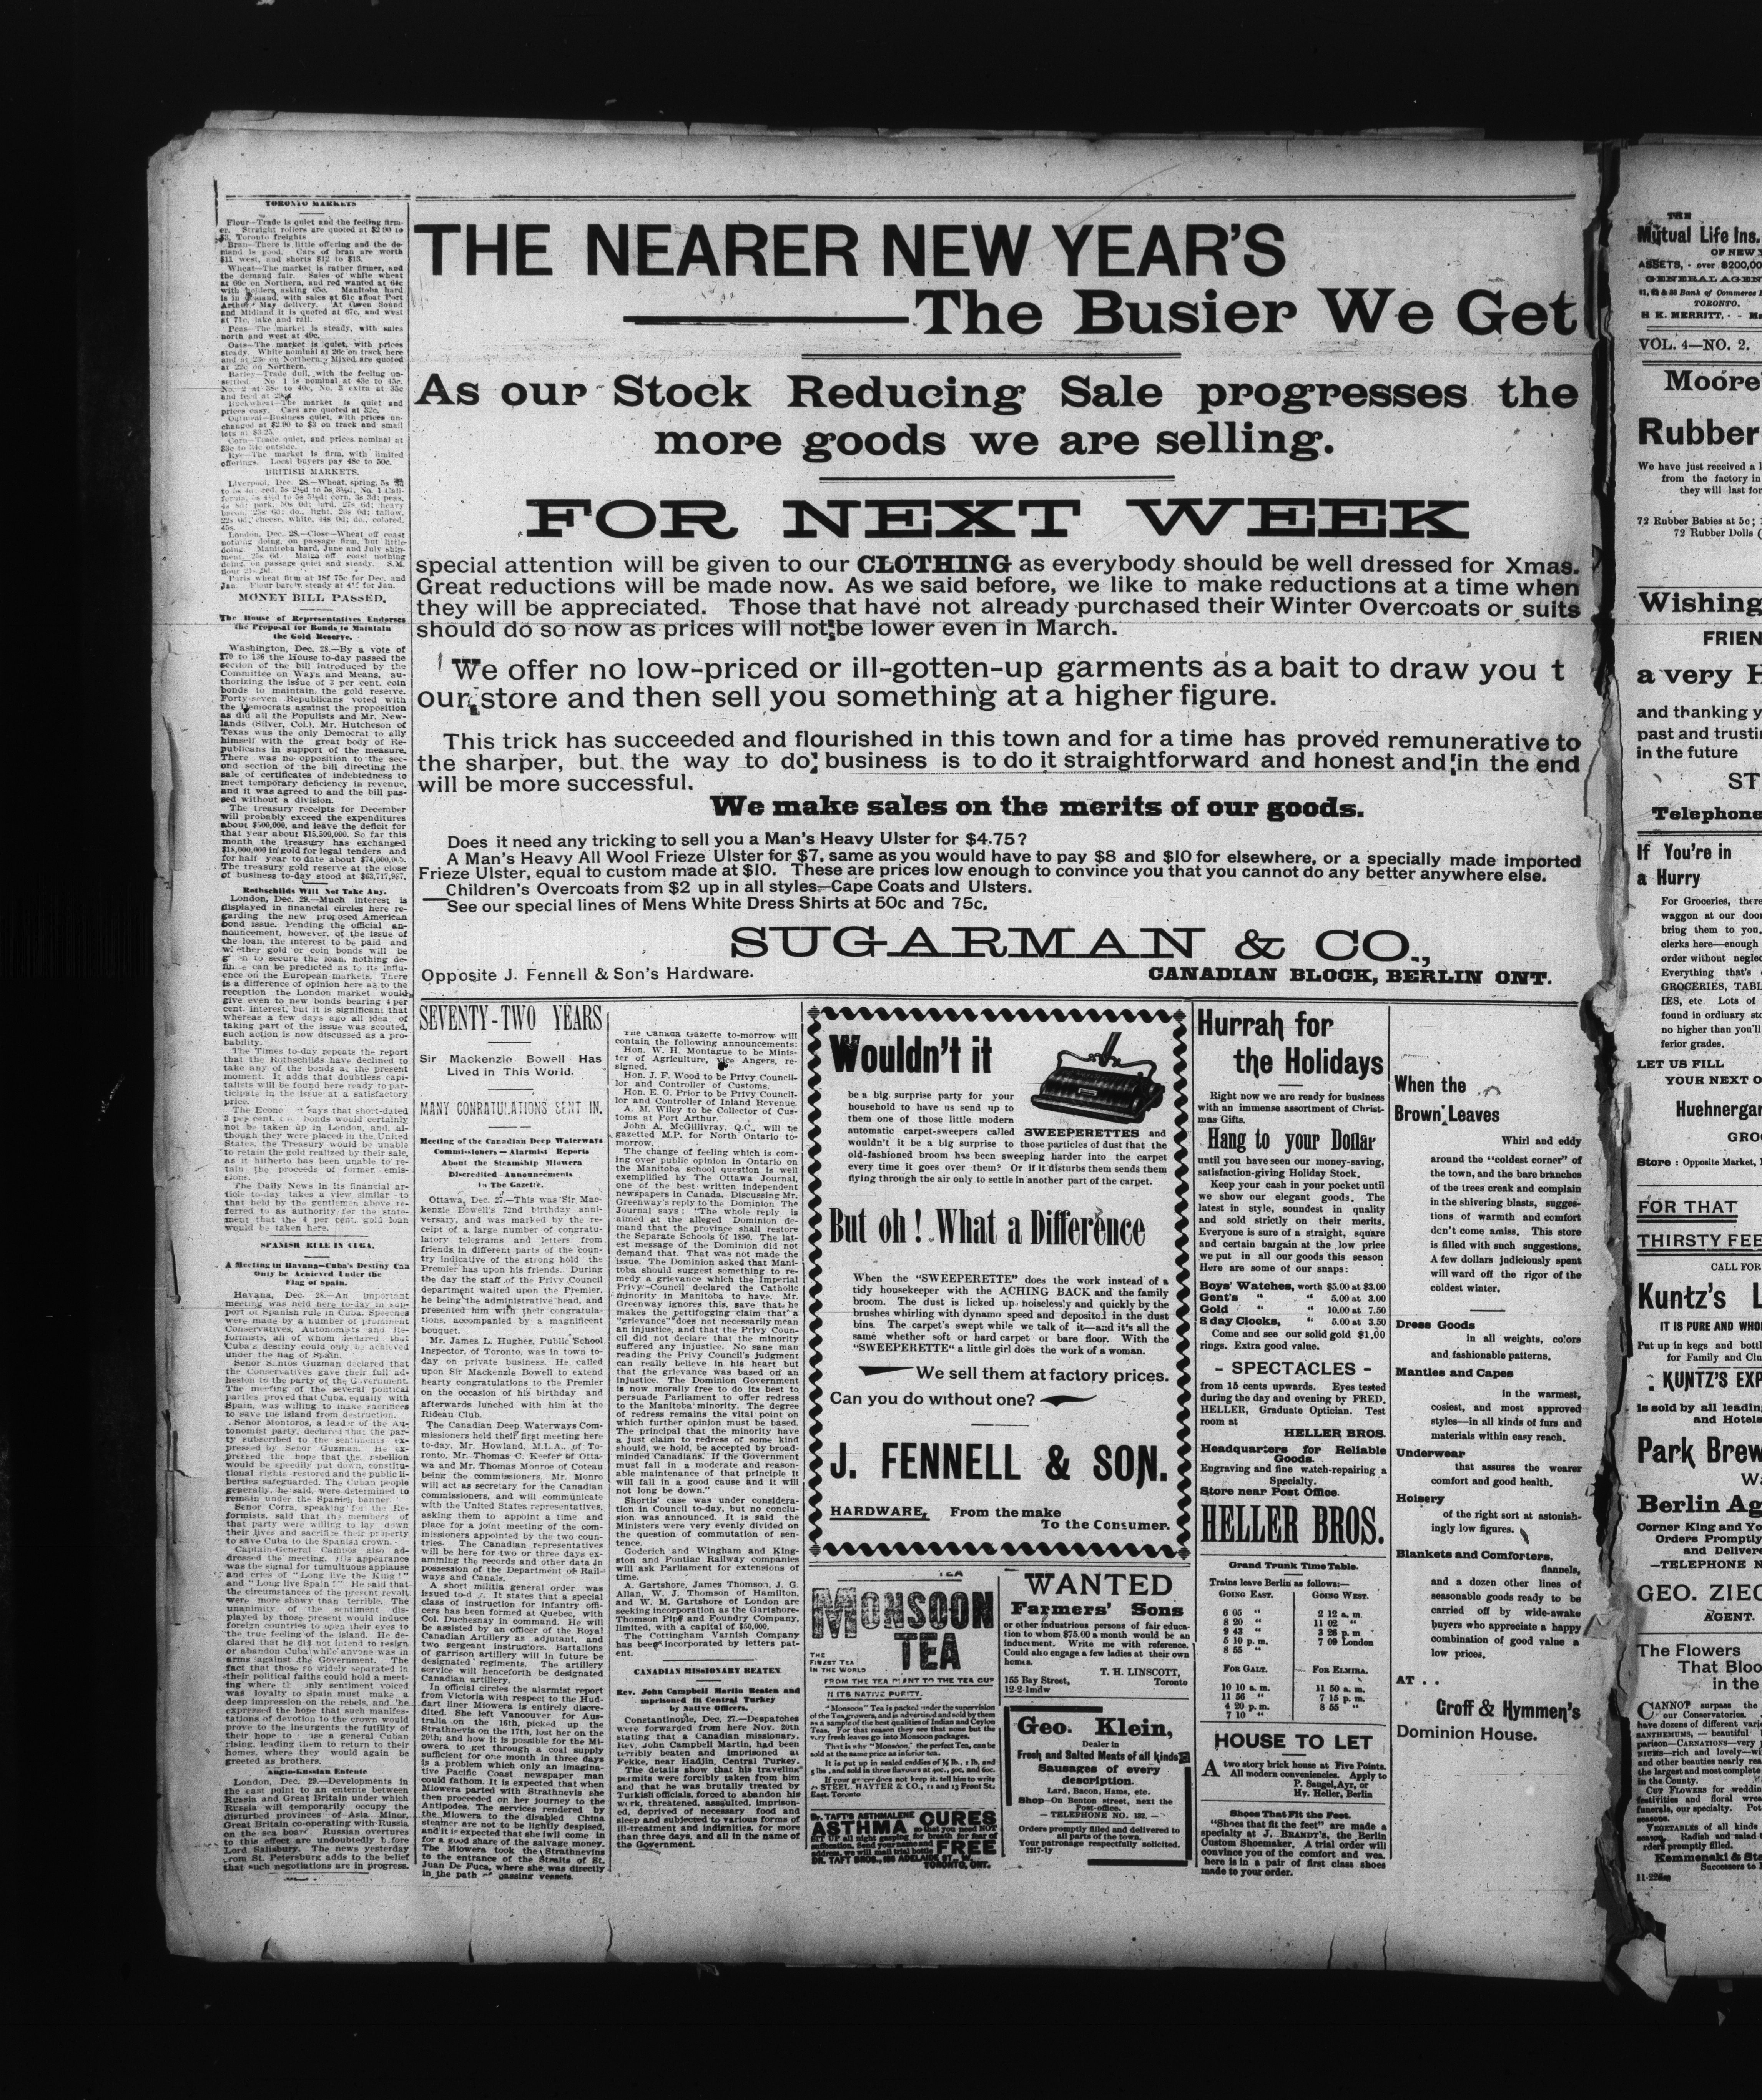 TORONTO MARKETS
Flour—Trade is quiet and the feeling firm-
er. Straight rollers are quoted at $2 90 to
$3, Toronto freights
Bran—There is little offering and the de-
mand is good. Cars of bran are worth
$11 west, and shorts $12 to $13.
Wheat—The market is rather firmer, and
the demand fair. Sales of white wheat
at 66c on Northern, and red wanted at 64c
with holders asking 65c. Manitoba hard
is in demand, with sales at 61c afloat Fort
Arthur May delivery. At Owen Sound
and Midland it is quoted at 67c, and west
at 71c, lake and rail.
Peas—The market is steady, with sales
north and west at 49c.
Oats—The market is quiet, with prices
steady. White nominal at 26c on track here
and at 23c on Northern. Mixed are quoted
at 22c on Northern.
Barley—Trade dull, with the feeling un-
settled. No 1 is nominal at 43c to 45c,
No. 2 at 38c to 40c, No. 3 extra at 35c
Buckwheat—The market is quiet and
prices easy. Cars are quoted at 32c.
Oatmeal—Business quiet, with prices un-
changed at $2.90 to $3 on track and small
lots at $3.25.
Corn—Trade quiet, and prices nominal at
$3c to 34c outside.
Rye—The market is firm, with limited
offerings. Local buyers pay 48c to 50c.
BRITISH MARKETS.
London, Dec. 28.—Close—Wheat off coast
nothing doing, on passage firm, but little
doing. Manitoba hard, June and July ship-
Paris wheat firm at 18f 75c for Dec. and
MONEY BILL PASSED.
The House of Representatives Endorses
the Proposal for Bonds to Maintain
the Gold Reserve.
Washington, Dec. 28.—By a vote of
170 to 136 the House to-day passed the
section of the bill introduced by the
Committee on Ways and Means, au-
thorizing the issue of 3 per cent. coin
bonds to maintain the gold reserve.
Forty-seven Republicans voted with
the Democrats against the proposition
as did all the Populists and Mr. New-
lands (Silver, Col.). Mr. Hutcheson of
Texas was the only Democrat to ally
himself with the great body of Re-
publicans in support of the measure.
There was no opposition to the sec-
ond section of the bill directing the
sale of certificates of indebtedness to
meet temporary deficiency in revenue,
and it was agreed to and the bill pas-
sed without a division.
The treasury receipts for December
will probably exceed the expenditures
about $500,000, and leave the deficit for
that year about $15,500,000. So far this
month the treasury has exchanged
$18,000,000 in gold for legal tenders and
for half year to date about $74,000,005.
The treasury gold reserve at the close
of business to-day stood at $63,717,987.
Rothschilds Will Not Take Any.
London, Dec. 29.—Much interest is
displayed in financial circles here re-
garding the new proposed American
bond issue. Pending the official an-
nouncement, however, of the issue of
the loan, the interest to be paid and
whether gold or coin bonds will be
given to secure the loan, nothing de-
finite can be predicted as to its influ-
ence on the European markets. There
is a difference of opinion here as to the
reception the London market would
give even to new bonds bearing 4 per
cent. interest, but it is significant that
whereas a few days ago all idea of
taking part of the issue was scouted,
such action is now discussed as a pro-
bability.
The Times to-day repeats the report
that the Rothschilds have declined to
take any of the bonds at the present
moment. It adds that doubtless capi-
talists will be found here ready to par-
ticipate in the issue at a satisfactory
price.
The Economist says that short-dated
3 per cent. bonds would certainly
not be taken up in London, and, al-
though they were placed in the United
States, the Treasury would be unable
to retain the gold realized by their sale,
as it hitherto has been unable to re-
tain the proceeds of former emis-
sions.
The Daily News in its financial ar-
ticle to-day takes a view similar to
that held by the gentlemen above re-
ferred to as authority for the state-
ment that the 4 per cent. gold loan
would be taken here.
SPANISH RULE IN CUBA.
A Meeting in Havana—Cuba's Destiny Can
Only be Achieved Under the
Flag of Spain.
Havana, Dec. 28.—An important
meeting was held here to-day in sup-
port of Spanish rule in Cuba. Speeches
were made by a number of prominent
Conservatives, Autonomists and Re-
formists, all of whom declared that
Cuba's destiny could only be achieved
under the flag of Spain.
Senor Santos Guzman declared that
the Conservatives gave their full ad-
hesion to the party of the Government.
The meeting of the several political
parties proved that Cuba, equally with
Spain, was willing to make sacrifices
to save the island from destruction.
Senor Montoros, a leader of the Au-
tonomist party, declared that the par-
ty subscribed to the sentiments ex-
pressed by Senor Guzman. He ex-
pressed the hope that the rebellion
would be speedily put down, constitu-
tional rights restored and the public li-
berties safeguarded. The Cuban people
generally, he said, were determined to
remain under the Spanish banner.
Senor Corra, speaking for the Re-
formists, said that the members of
that party were willing to lay down
their lives and sacrifice their property
to save Cuba to the Spanish crown.
Captain-General Campos also ad-
dressed the meeting. His appearance
was the signal for tumultuous applause
and cries of "Long live the King!"
and "Long live Spain!" He said that
the circumstances of the present revolt
were more showy than terrible. The
unanimity of the sentiment dis-
played by those present would induce
foreign countries to open their eyes to
the true feeling of the island. He de-
clared that he did not intend to resign
or abandon Cuba while anyone was in
arms against the Government. The
fact that those so widely separated in
their political faiths could hold a meet-
ing where the only sentiment voiced
was loyalty to Spain must make a
deep impression on the rebels, and he
expressed the hope that such manifes-
tations of devotion to the crown would
prove to the insurgents the futility of
their hope to raise a general Cuban
rising, leading them to return to their
homes, where they would again be
greeted as brothers.
Anglo-Russian Entente
London, Dec. 29.—Developments in
the east point to an entente between
Russia and Great Britain under which
Russia will temporarily occupy the
disturbed provinces of Asia Minor,
Great Britain co-operating with Russia
on the sea board. Russian overtures
to this effect are undoubtedly before
Lord Salisbury. The news yesterday
from St. Petersburg adds to the belief
that such negotiations are in progress.
THE NEARER NEW YEAR'S
The Busier We Get
As our Stock Reducing Sale progresses the
more goods we are selling.
FOR NEXT WEEK
special attention will be given to our CLOTHING as everybody should be well dressed for Xmas.
Great reductions will be made now. As we said before, we like to make reductions at a time when
they will be appreciated. Those that have not already purchased their Winter Overcoats or suits
should do so now as prices will not be lower even in March.
We offer no low-priced or ill-gotten-up garments as a bait to draw you t
our store and then sell you something at a higher figure.
This trick has succeeded and flourished in this town and for a time has proved remunerative to
the sharper, but the way to do business is to do it straightforward and honest and in the end
will be more successful.
We make sales on the merits of our goods.
Does it need any tricking to sell you a Man's Heavy Ulster for $4.75?
A Man's Heavy All Wool Frieze Ulster for $7, same as you would have to pay $8 and $10 for elsewhere, or a specially made imported
Frieze Ulster, equal to custom made at $10. These are prices low enough to convince you that you cannot do any better anywhere else.
Children's Overcoats from $2 up in all styles—Cape Coats and Ulsters.
See our special lines of Mens White Dress Shirts at 50c and 75c.
SUGARMAN & CO.,
Opposite J. Fennell & Son's Hardware.
CANADIAN BLOCK, BERLIN ONT.
SEVENTY-TWO YEARS
Sir Mackenzie Bowell Has
Lived in This World.
MANY CONRATULATIONS SENT IN.
Meeting of the Canadian Deep Waterways
Commissioners—Alarmist Reports
About the Steamship Miowera
Discredited—Announcements
in The Gazette.
Ottawa, Dec. 27.—This was Sir Mac-
kenzie Bowell's 72nd birthday anni-
versary, and was marked by the re-
ceipt of a large number of congratu-
latory telegrams and letters from
friends in different parts of the coun-
try indicative of the strong hold the
Premier has upon his friends. During
the day the staff of the Privy Council
department waited upon the Premier,
he being the administrative head, and
presented him with their congratula-
tions, accompanied by a magnificent
bouquet.
Mr. James L. Hughes, Public School
Inspector, of Toronto, was in town to-
day on private business. He called
upon Sir Mackenzie Bowell to extend
hearty congratulations to the Premier
on the occasion of his birthday and
afterwards lunched with him at the
Rideau Club.
The Canadian Deep Waterways Com-
missioners held their first meeting here
to-day, Mr. Howland, M.L.A., of To-
ronto, Mr. Thomas C. Keefer of Otta-
wa and Mr. Thomas Monroe of Coteau
being the commissioners. Mr. Monro
will act as secretary for the Canadian
commissioners, and will communicate
with the United States representatives,
asking them to appoint a time and
place for a joint meeting of the com-
missioners appointed by the two coun-
tries. The Canadian representatives
will be here for two or three days ex-
amining the records and other data in
possession of the Department of Rail-
ways and Canals.
A short militia general order was
issued to-day. It states that a special
class of instruction for infantry offi-
cers has been formed at Quebec, with
Col. Duchesnay in command. He will
be assisted by an officer of the Royal
Canadian Artillery as adjutant, and
two sergeant instructors. Battalions
of garrison artillery will in future be
designated regiments. The artillery
service will henceforth be designated
Canadian artillery.
In official circles the alarmist report
from Victoria with respect to the Hud-
dart liner Miowera is entirely discre-
dited. She left Vancouver for Aus-
tralia on the 16th, picked up the
Strathnevis on the 17th, lost her on the
20th; and how it is possible for the Mi-
owera to get through a coal supply
sufficient for one month in three days
is a problem which only an imagina-
tive Pacific Coast newspaper man
could fathom. It is expected that when
Miowera parted with Strathnevis she
then proceeded on her journey to the
Antipodes. The services rendered by
the Miowera to the disabled China
steamer are not to be lightly despised,
and it is expected that she will come in
for a good share of the salvage money.
The Miowera took the Strathnevins
to the entrance of the Straits of St.
Juan De Fuca, where she was directly
in the path of passing vessels.
The Canada Gazette to-morrow will
contain the following announcements:
Hon. W. H. Montague to be Minis-
ter of Agriculture, vice Angers, re-
signed.
Hon. J. F. Wood to be Privy Council-
lor and Controller of Customs.
Hon. E. G. Prior to be Privy Council-
lor and Controller of Inland Revenue.
A. M. Wiley to be Collector of Cus-
toms at Port Arthur.
John A. McGillivray, Q.C., will be
gazetted M.P. for North Ontario to-
morrow.
The change of feeling which is com-
ing over public opinion in Ontario on
the Manitoba school question is well
exemplified by The Ottawa Journal,
one of the best written independent
newspapers in Canada. Discussing Mr.
Greenway's reply to the Dominion The
Journal says: "The whole reply is
aimed at the alleged Dominion de-
mand that the province shall restore
the Separate Schools of 1890. The lat-
est message of the Dominion did not
demand that. That was not made the
issue. The Dominion asked that Mani-
toba should suggest something to re-
medy a grievance which the Imperial
Privy Council declared the Catholic
minority in Manitoba to have. Mr.
Greenway ignores this, save that he
makes the pettifogging claim that a
"grievance" does not necessarily mean
an injustice, and that the Privy Coun-
cil did not declare that the minority
suffered any injustice. No sane man
reading the Privy Council's judgment
can really believe in his heart but
that the grievance was based on an
injustice. The Dominion Government
is now morally free to do its best to
persuade Parliament to offer redress
to the Manitoba minority. The degree
of redress remains the vital point on
which further opinion must be based.
The principal that the minority have
a just claim to redress of some kind
should, we hold, be accepted by broad-
minded Canadians. If the Government
must fall in a moderate and reason-
able maintenance of that principle it
will fall in a good cause and it will
not long be down."
Shortis' case was under considera-
tion in Council to-day, but no conclu-
sion was announced. It is said the
Ministers were very evenly divided on
the question of commutation of sen-
tence.
Goderich and Wingham and King-
ston and Pontiac Railway companies
will ask Parliament for extensions of
time.
A. Gartshore, James Thomson, J. G.
Allan, W. J. Thomson of Hamilton,
and W. M. Gartshore of London are
seeking incorporation as the Gartshore-
Thomson Pipe and Foundry Company,
limited, with a capital of $50,000.
The Cottingham Varnish Company
has been incorporated by letters pat-
ent.
CANADIAN MISSIONARY BEATEN.
Rev. John Campbell Martin Beaten and
Imprisoned in Central Turkey
by Native Officers.
Constantinople, Dec. 27.—Despatches
were forwarded from here Nov. 20th
stating that a Canadian missionary,
Rev. John Campbell Martin, had been
terribly beaten and imprisoned at
Fekke, near Hadjin, Central Turkey.
The details show that his traveling
permits were forcibly taken from him
and that he was brutally treated by
Turkish officials, forced to abandon his
work, threatened, assaulted, imprison-
ed, deprived of necessary food and
sleep and subjected to various forms of
ill-treatment and indignities, for more
than three days, and all in the name of
the Government.
Wouldn't it
be a big surprise party for your
household to have us send up to
them one of those little modern
automatic carpet-sweepers called SWEEPERETTES and
wouldn't it be a big surprise to those particles of dust that the
old-fashioned broom has been sweeping harder into the carpet
every time it goes over them? Or if it disturbs them sends them
flying through the air only to settle in another part of the carpet.
But oh! What a Difference
When the "SWEEPERETTE" does the work instead of a
tidy housekeeper with the ACHING BACK and the family
broom. The dust is licked up noiselessly and quickly by the
brushes whirling with dynamo speed and deposited in the dust
bins. The carpet's swept while we talk of it—and it's all the
same whether soft or hard carpet or bare floor. With the
"SWEEPERETTE" a little girl does the work of a woman.
We sell them at factory prices.
Can you do without one?
J. FENNELL & SON.
HARDWARE, From the make
To the Consumer.
TEA
MONSOON
TEA
THE
FINEST TEA
IN THE WORLD
FROM THE TEA PLANT TO THE TEA CUP
IN ITS NATIVE PURITY.
"Monsoon" Tea is packed under the supervision
of the Tea growers, and is advertised and sold by them
as a sample of the best qualities of Indian and Ceylon
Teas. For that reason they see that none but the
very fresh leaves go into Monsoon packages.
That is why "Monsoon," the perfect Tea, can be
sold at the same price as inferior tea.
It is put up in sealed caddies of ½ lb., 1 lb. and
5 lbs., and sold in three flavours at 40c., 50c. and 60c.
If your grocer does not keep it, tell him to write
to STEEL, HAYTER & CO., 11 and 13 Front St.
East, Toronto.
DR. TAFT'S ASTHMALENE CURES
ASTHMA so that you need NOT
SIT UP all night gasping for breath for fear of
suffocation. Send your name and
address, we will mail trial bottle FREE
DR. TAFT BROS., 186 ADELAIDE ST. W.,
TORONTO, ONT.
WANTED
Farmers' Sons
or other industrious persons of fair educa-
tion to whom $75.00 a month would be an
inducment. Write me with reference.
Could also engage a few ladies at their own
homes.
T. H. LINSCOTT,
155 Bay Street, Toronto
12-2-1mdw
Geo. Klein,
Dealer in
Fresh and Salted Meats of all kinds
Sausages of every
description.
Lard, Bacon, Hams, etc.
Shop—On Benton street, next the
Post-office.
— TELEPHONE NO. 132. —
Orders promptly filled and delivered to
all parts of the town.
Your patronage respectfully solicited.
1217-1y
Hurrah for
the Holidays
Right now we are ready for business
with an immense assortment of Christ-
mas Gifts.
Hang to your Dollar
until you have seen our money-saving,
satisfaction-giving Holiday Stock.
Keep your cash in your pocket until
we show our elegant goods. The
latest in style, soundest in quality
and sold strictly on their merits.
Everyone is sure of a straight, square
and certain bargain at the low price
we put in all our goods this season
Here are some of our snaps:
Boys' Watches, worth $5.00 at $3.00
Gent's " " 5.00 at 3.00
Gold " " 10.00 at 7.50
8 day Clocks, " 5.00 at 3.50
Come and see our solid gold $1.00
rings. Extra good value.
- SPECTACLES -
from 15 cents upwards. Eyes tested
during the day and evening by FRED.
HELLER, Graduate Optician. Test
room at
HELLER BROS.
Headquarters for Reliable
Goods.
Engraving and fine watch-repairing a
Specialty.
Store near Post Office.
HELLER BROS.
Grand Trunk Time Table.
Trains leave Berlin as follows:—
GOING EAST. GOING WEST.
6 05 " 2 12 a. m.
8 20 " 11 02 "
9 43 " 3 26 p. m
5 10 p. m. 7 09 London
8 55 "
FOR GALT. FOR ELMIRA.
10 10 a. m. 11 50 a. m.
11 56 " 7 15 p. m.
4 20 p. m. 8 55 "
7 10 "
HOUSE TO LET
A two story brick house at Five Points.
All modern conveniencies. Apply to
P. Sangel, Ayr, or
Hy. Heller, Berlin
Shoes That Fit the Feet.
"Shoes that fit the feet" are made a
specialty at J. BRANDT'S, the Berlin
Custom Shoemaker. A trial order will
convince you of the comfort and wea.
here is in a pair of first class shoes
made to your order.
When the
Brown Leaves
Whirl and eddy
around the "coldest corner" of
the town, and the bare branches
of the trees creak and complain
in the shivering blasts, sugges-
tions of warmth and comfort
don't come amiss. This store
is filled with such suggestions.
A few dollars judiciously spent
will ward off the rigor of the
coldest winter.
Dress Goods
in all weights, colors
and fashionable patterns.
Mantles and Capes
in the warmest,
cosiest, and most approved
styles—in all kinds of furs and
materials within easy reach.
Underwear
that assures the wearer
comfort and good health.
Hoisery
of the right sort at astonish-
ingly low figures.
Blankets and Comforters,
flannels,
and a dozen other lines of
seasonable goods ready to be
carried off by wide-awake
buyers who appreciate a happy
combination of good value a
low prices.
AT . .
Groff & Hymmen's
Dominion House.
THE
Mutual Life Ins.
OF NEW
ASSETS, - over $200,00
GENERAL AGEN
Bank of Commerce
TORONTO.
H K. MERRITT, - -
VOL. 4—NO. 2.
Moore
Rubber
We have just received a l
from the factory in
they will last for
72 Rubber Babies at 5c;
72 Rubber Dolls (
Wishing
FRIEN
a very H
and thanking y
past and trusti
in the future
ST
Telephone
If You're in
a Hurry
For Groceries, there
waggon at our door
bring them to you.
clerks here—enough
order without neglec
Everything that's
GROCERIES, TABL
IES, etc. Lots of
found in ordinary sto
no higher than you'll
ferior grades.
LET US FILL
YOUR NEXT O
Huehnergar
GRO
Store : Opposite Market,
FOR THAT
THIRSTY FEE
CALL FOR
Kuntz's L
IT IS PURE AND WHO
Put up in kegs and bottl
for Family and Clu
: KUNTZ'S EXP
is sold by all leadin
and Hotels
Park Brew
Berlin Ag
Corner King and Yo
Orders Promptly
and Delivere
—TELEPHONE N
GEO. ZIEG
AGENT.
The Flowers
That Bloo
in the
CANNOT surpass the
our Conservatories.
have dozens of different vari
SANTHEMUMS, — beautiful
parison—CARNATIONS—very
NIUMS—rich and lovely—wi
and other beauties nearly rea
the largest and most complete
in the County.
CUT FLOWERS for weddin
festivities and floral wrea
funerals, our specialty. Pot
seasons.
VEGETABLES of all kinds
season. Radish and salad
rders promptly filled.
Kemmenski & Sta
Successors to